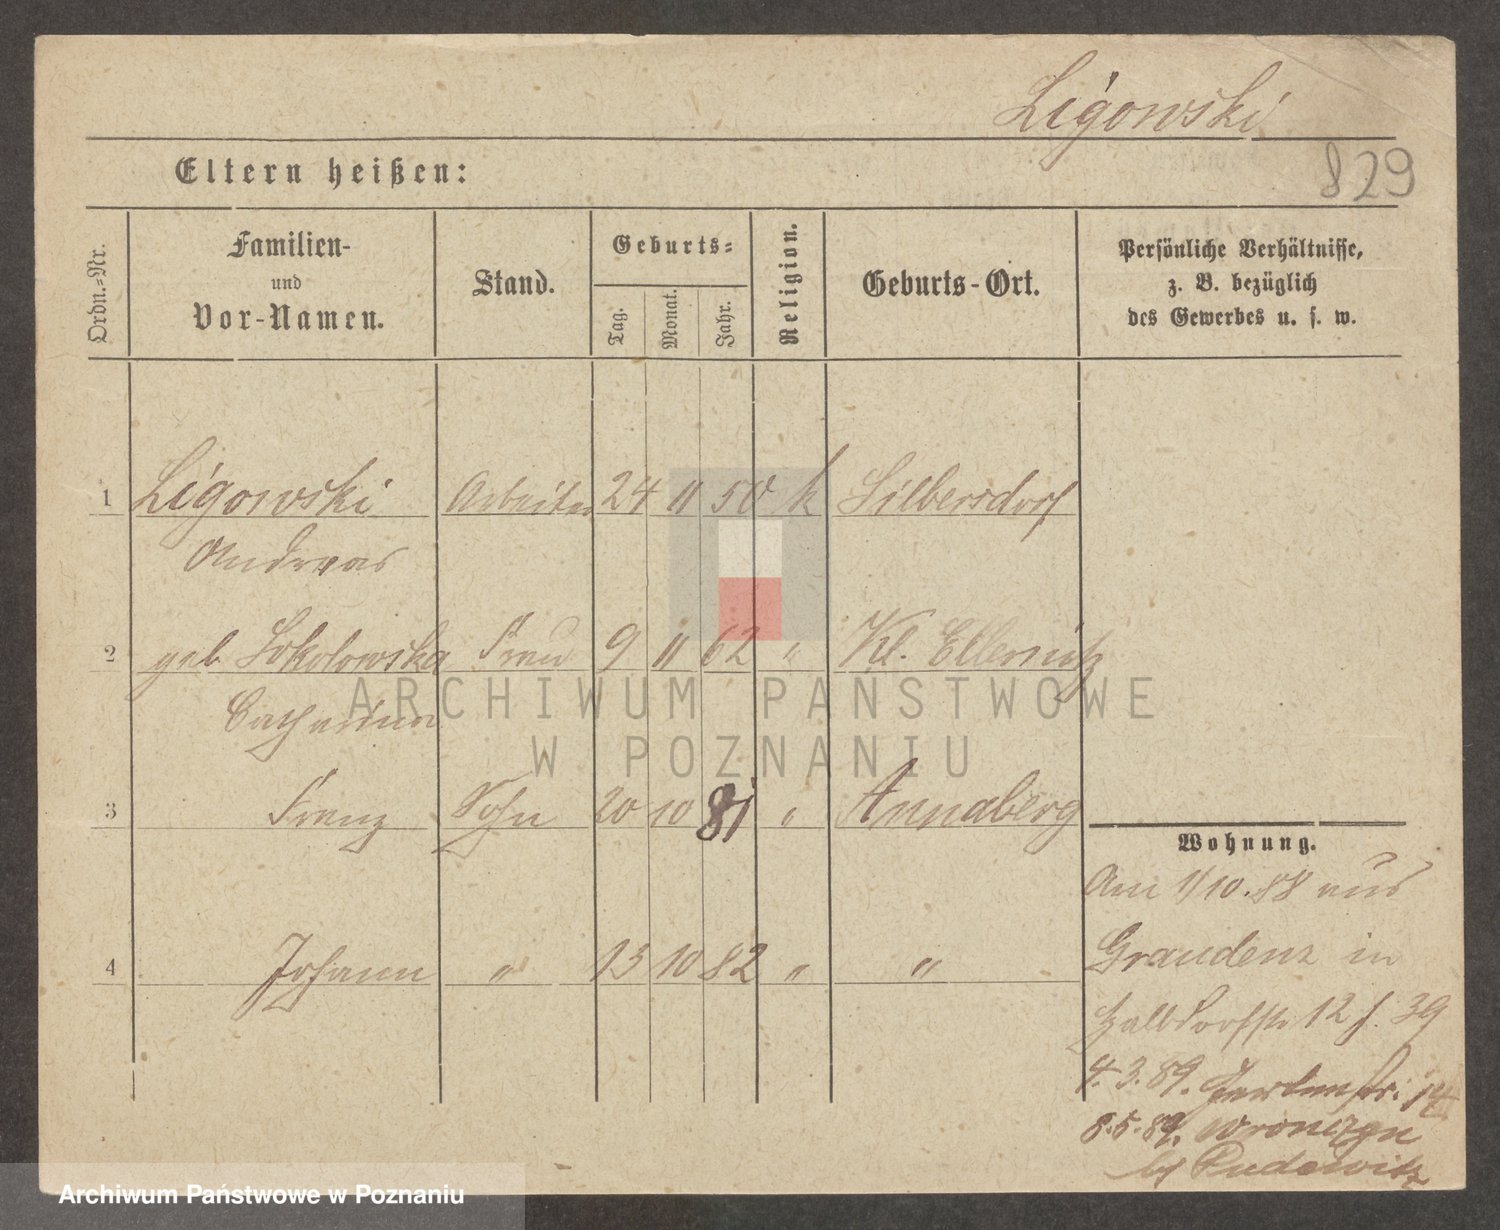 Ligowski
829
Eltern heißen:
Ordn.-Nr.
Familien-
und
Vor-Namen.
Stand.
Geburts-
Tag.
Monat.
Jahr.
Religion.
Geburts-Ort.
Persönliche Verhältnisse,
z. B. bezüglich
des Gewerbes u. s. w.
1 Ligowski Arbeiter 24 11 50 k Silbersdorf
Andreas
2 geb. Sokolowska Frau 9 11 62 " Kl. Ellernitz
Catharina
3 Franz Sohn 20 10 81 " Annaberg
4 Johann " 13 10 82 " "
Wohnung.
Am 1/10.88 aus
Graudenz in
12 39
4.3.89. Gartenstr. 14
8.5.89. Wronczyn
b/ Pudewitz
ARCHIWUM PAŃSTWOWE
W POZNANIU
Archiwum Państwowe w Poznaniu